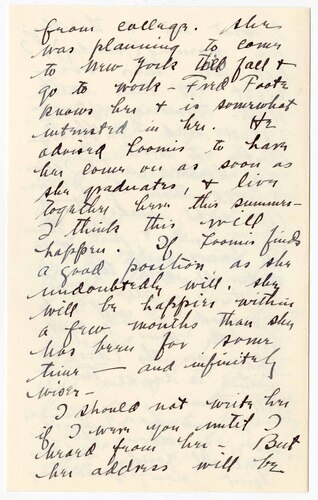 from college. She
was planning to come
to New York this fall &
go to work – Fred Foote
knows her & is somewhat
interested in her. He
advised Loomis to have
her come on as soon as
she graduates, & live
together here this summer –
I think this will
happen. If Loomis finds
a good position as she
undoubtedly will, she
will be happier within
a few months than she
has been for some
time – and infinitely
wiser –
I should not write her
if I were you until I
heard from her – But
her address will be